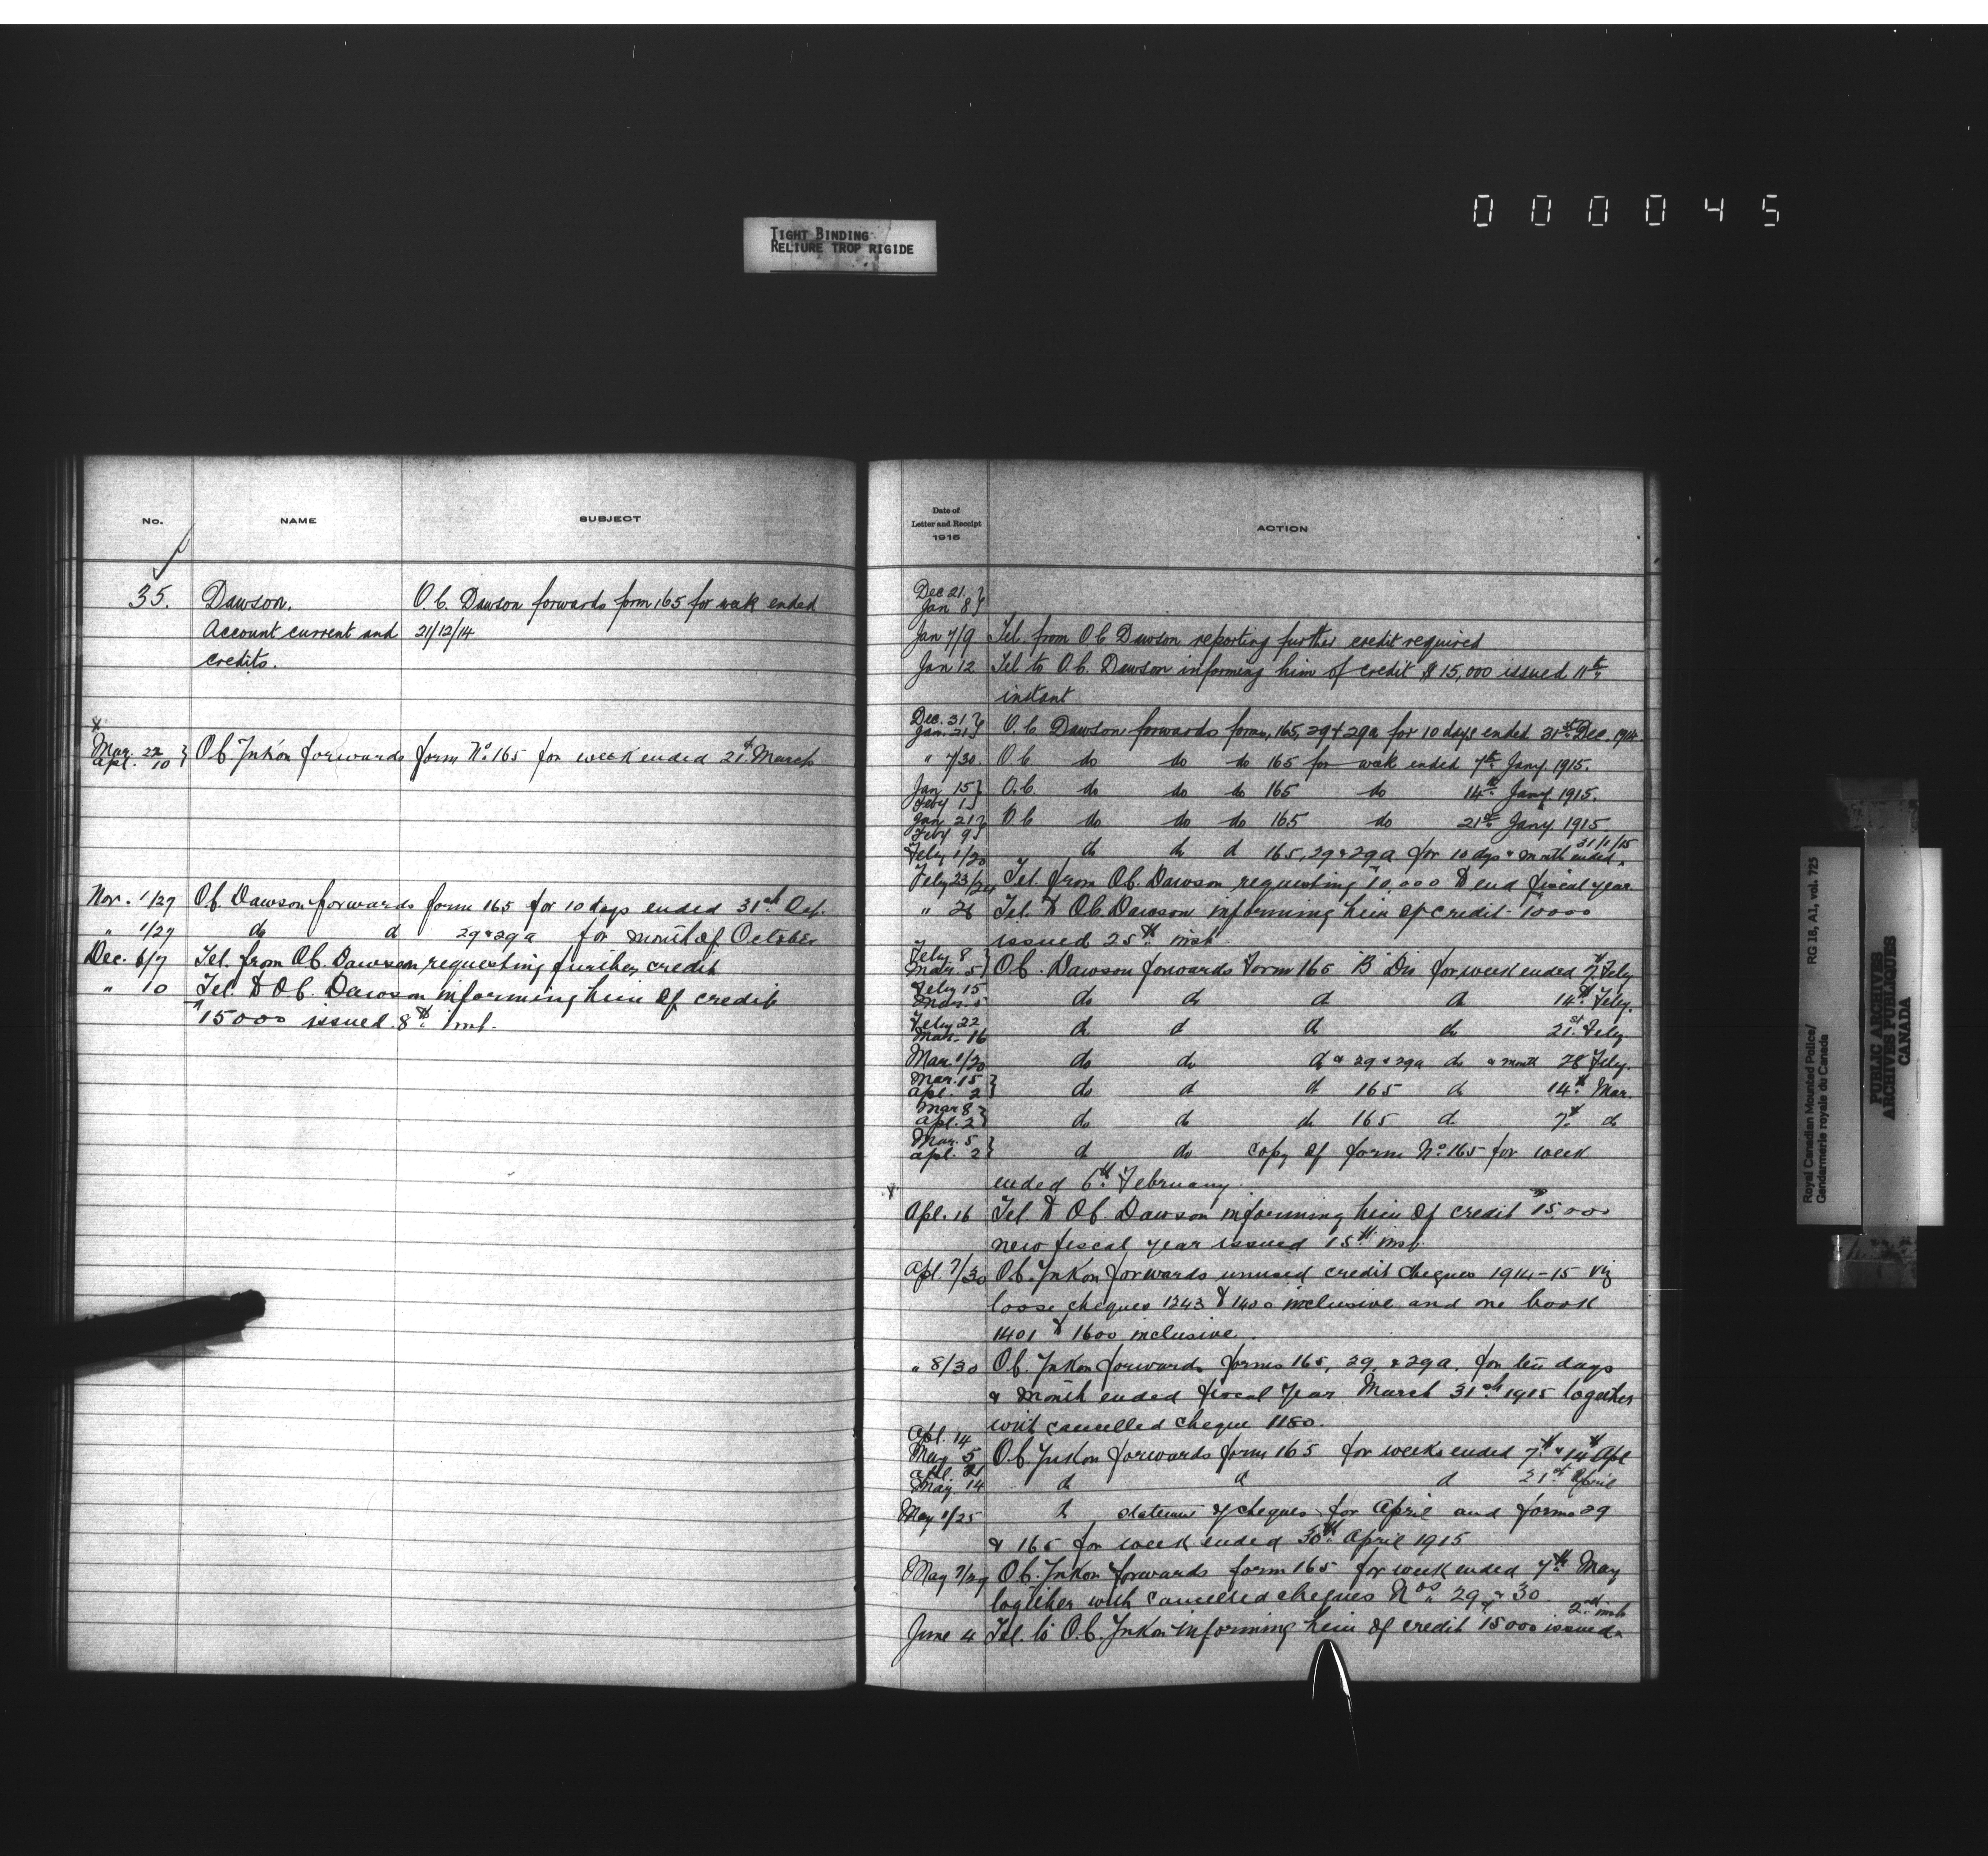 0 0 0 0 4 5
TIGHT BINDING
RELIURE TROP RIGIDE
No. NAME SUBJECT
35. Dawson. O.C. Dawson forwards form 165 for week ended
Account current and 21/12/14
credits.
x
Mar. 22
Apl. 10 } O.C. Yukon forwards form No. 165 for week ended 21st March
Nov. 1/27 O.C. Dawson forwards form 165 for 10 days ended 31st Oct.
" 1/27 do d 29 & 29a for month of October
Dec. 6/7 Tel. from O.C. Dawson requesting further credit
" 10 Tel. to O.C. Dawson informing him of credit
15000 issued 8th inst.
Date of
Letter and Receipt
1915
ACTION
Dec 21 }
Jan 8 }
Jan 7/9 Tel. from O.C. Dawson reporting further credit required
Jan 12 Tel to O.C. Dawson informing him of credit $15,000 issued 11th
instant
Dec. 31 }
Jan. 21 } O.C. Dawson forwards forms, 165, 29 & 29a for 10 days ended 31st Dec. 1914
" 7/30. O.C. do do do 165 for week ended 7th Jany. 1915.
Jan 15 }
Feby 1 } O.C. do do do 165 do 14th Jany. 1915.
Jan 21 }
Feby 9 } O.C. do do do 165 do 21st Jany 1915
Feby 1/20 do do d 165, 29 & 29a for 10 dys & month ended 31/1/15
Feby 23/24 Tel. from O.C. Dawson requesting 10,000 to end fiscal year
" 26 Tel. to O.C. Dawson informing him of credit 10000
issued 25th inst.
Feby. 8 }
Mar. 5 } O.C. Dawson forwards Form 165 B Div for week ended 7th Feby
Feby 15
Mar. 5 do do d do 14th Feby.
Feby 22
Mar. 16 do d do do 21st Feby.
Mar. 1/20 do do do & 29 & 29a do & month 28 Feby.
Mar. 15 }
Apl. 2 } do d d 165 do 14th Mar.
Mar 8 }
Apl. 2 } do do do 165 d. 7th do
Mar. 5 }
Apl. 2 } do do copy of form No. 165 for week
ended 6th February.
x
Apl. 16 Tel. to O.C. Dawson informing him of credit 15,000
new fiscal year issued 15th inst.
Apl. 7/30 O.C. Yukon forwards unused credit cheques 1914-15 viz
loose cheques 1243 to 1400 inclusive and one book
1401 to 1600 inclusive.
" 8/30 O.C. Yukon forwards forms 165, 29, & 29a. for ten days
& month ended fiscal year March 31st 1915 together
with cancelled cheque 1180.
Apl. 14
May 5 O.C. Yukon forwards form 165 for weeks ended 7th & 14th Apl
Apl. 21
May. 14 do d d 21st April
May 1/25 do statemt of cheques for April and forms 29
& 165 for week ended 30th April 1915
May 7/29 O.C. Yukon forwards form 165 for week ended 7th May
together with cancelled cheques Nos. 29 & 30
June 4 Tel. to O.C. Yukon informing him of credit 15000 issued 2nd inst
Royal Canadian Mounted Police/
Gendarmerie royale du Canada
RG 18, A1, vol. 725
PUBLIC ARCHIVES
ARCHIVES PUBLIQUES
CANADA